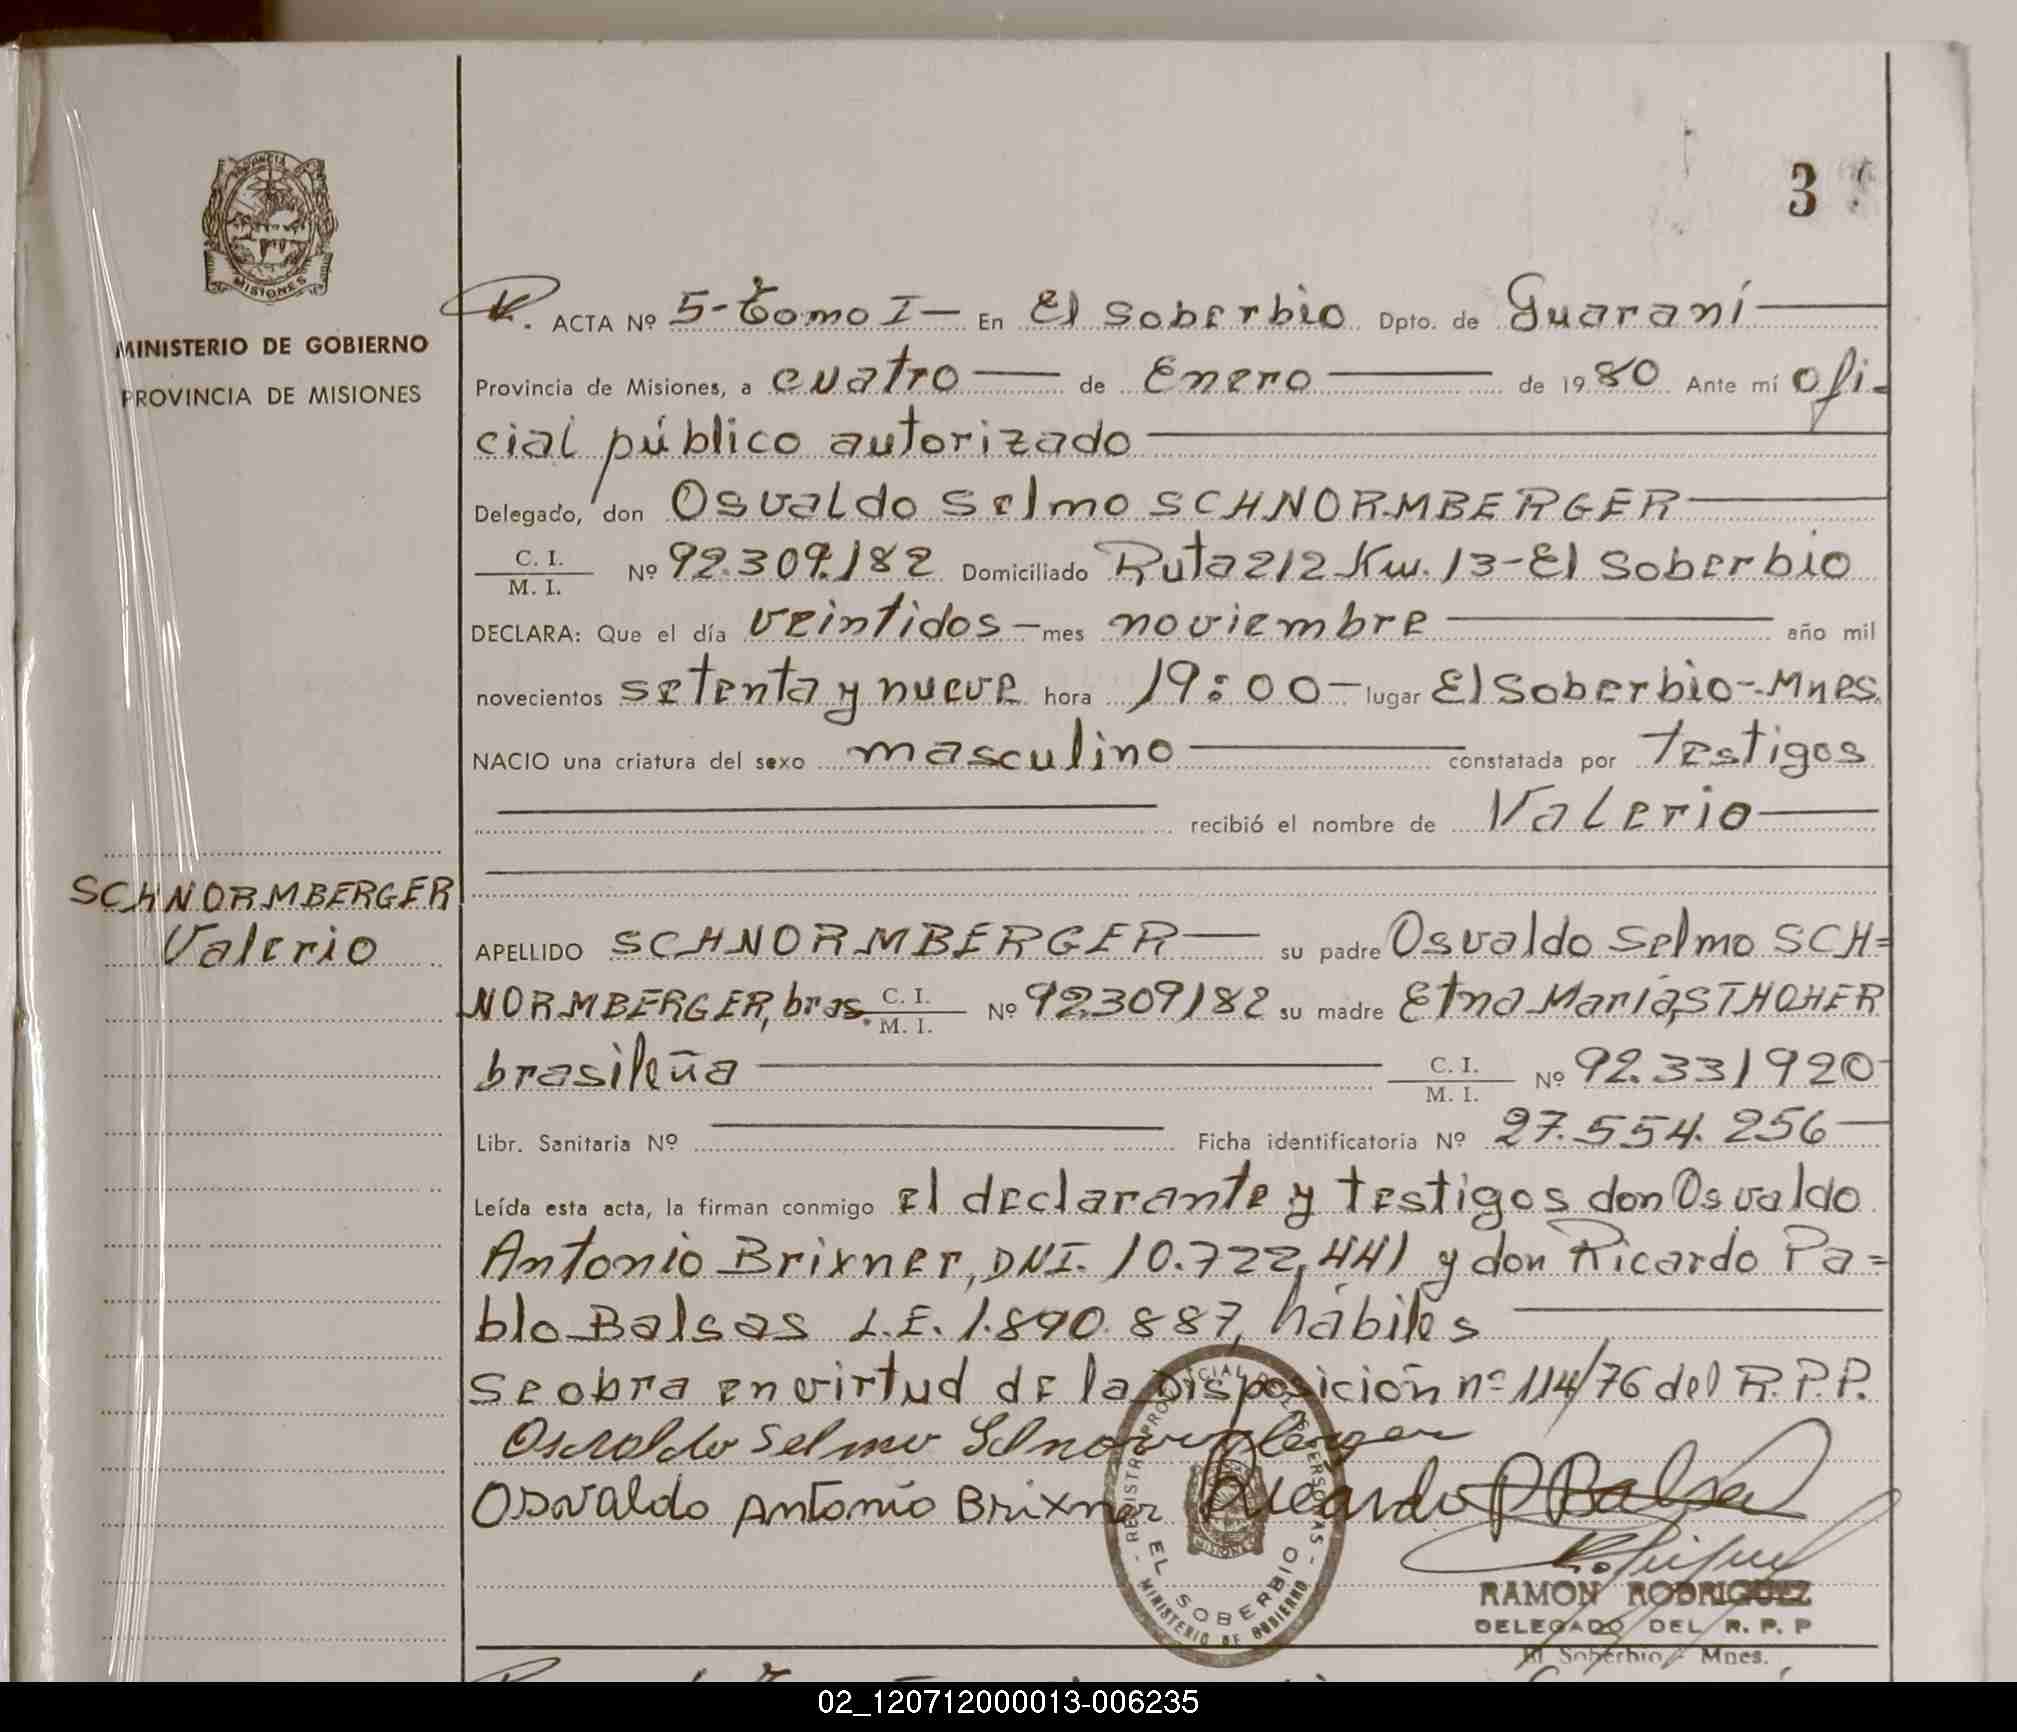 3
PROVINCIA
MISIONES
MINISTERIO DE GOBIERNO
PROVINCIA DE MISIONES
ACTA Nº 5-Tomo I- En El Soberbio Dpto. de Guaraní
Provincia de Misiones, a cuatro de Enero de 1980 Ante mí ofi-
cial público autorizado
Delegado, don Osvaldo Selmo SCHNORMBERGER
C. I.
M. I. Nº 92.309.182 Domiciliado Ruta 212 Km. 13-El Soberbio
DECLARA: Que el día veintidos - mes noviembre año mil
novecientos setenta y nueve hora 19:00- lugar El Soberbio-Mnes.
NACIO una criatura del sexo masculino constatada por testigos
recibió el nombre de Valerio
SCHNORMBERGER
Valerio
APELLIDO SCHNORMBERGER su padre Osvaldo Selmo SCH=
NORMBERGER, bras. C. I. M. I. Nº 92.309182 su madre Etna María STHOHER
brasileña C. I. M. I. Nº 92.331920
Libr. Sanitaria Nº Ficha identificatoria Nº 27.554.256
Leída esta acta, la firman conmigo el declarante y testigos don Osvaldo
Antonio Brixner, DNI. 10.722.441 y don Ricardo Pa=
blo Balsas L.E. 1.890.887, hábiles
Se obra en virtud de la Disposición nº 114/76 del R.P.P.
Osvaldo Selmo Schnormberger
Osvaldo Antonio Brixner Ricardo P Balsa
REGISTRO PROVINCIAL DE LAS PERSONAS
MISIONES
EL SOBERBIO
MINISTERIO DE GOBIERNO
RAMON RODRIGUEZ
DELEGADO DEL R. P. P
El Soberbio - Mnes.
02_120712000013-006235